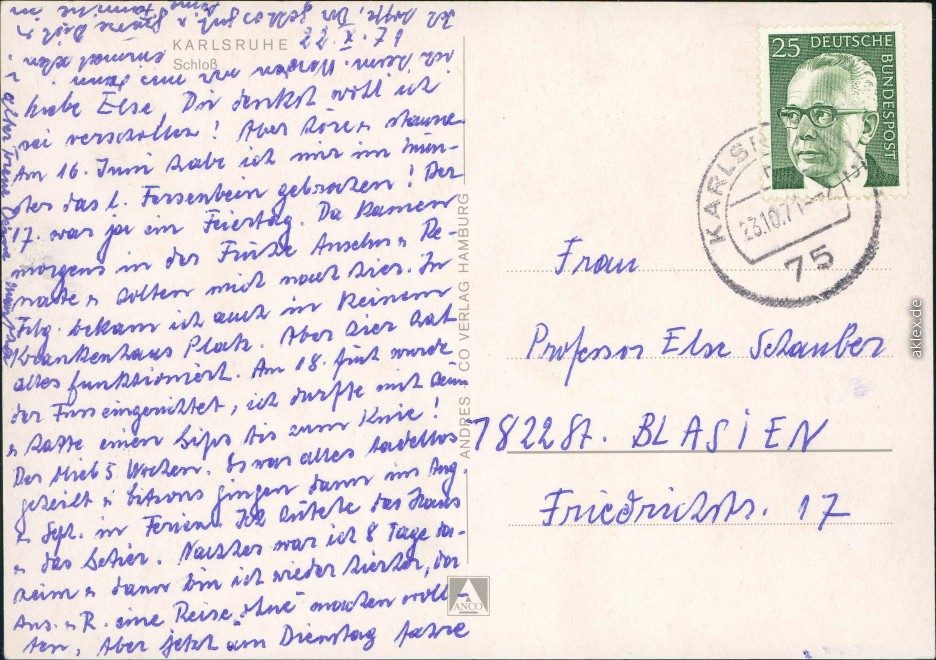 KARLSRUHE
Schloß
22.X.71
Liebe Else. Du denkst wohl ich
sei verschollen! Aber höre u staune
Am 16. Juni habe ich mir im Mün-
ster das l. Fersenbein gebrochen! Der
17. war ja ein Feiertag. Da kamen
morgens in der Frühe Anselm u Re-
nate u holten mich nach hier. In
Fbg. bekam ich auch in keinem
Krankenhaus Platz. Aber hier hat
alles funktioniert. Am 18. früh wurde
der Fuss eingerichtet, ich durfte mit heim
u hatte einen Gips bis zum Knie!
Der blieb 5 Wochen. Es war alles tadellos
geheilt u gingen dann im Aug.
u Sept. in Ferien. Ich hütete das Haus
u das Getier. Nachher war ich 8 Tage da-
heim u dann bin ich wieder hierher, da
Ans. u R. eine Reise "ohne" machen woll-
ten. Aber jetzt am Dienstag fahre
ich hoffe, Dir geht es gut
ANDRES CO VERLAG HAMBURG
ANCO
25 DEUTSCHE BUNDESPOST
KARLSR
23.10.71
75
Frau
Professor Else Schauber
7822 St. BLASIEN
Friedrichstr. 17
aklex.de